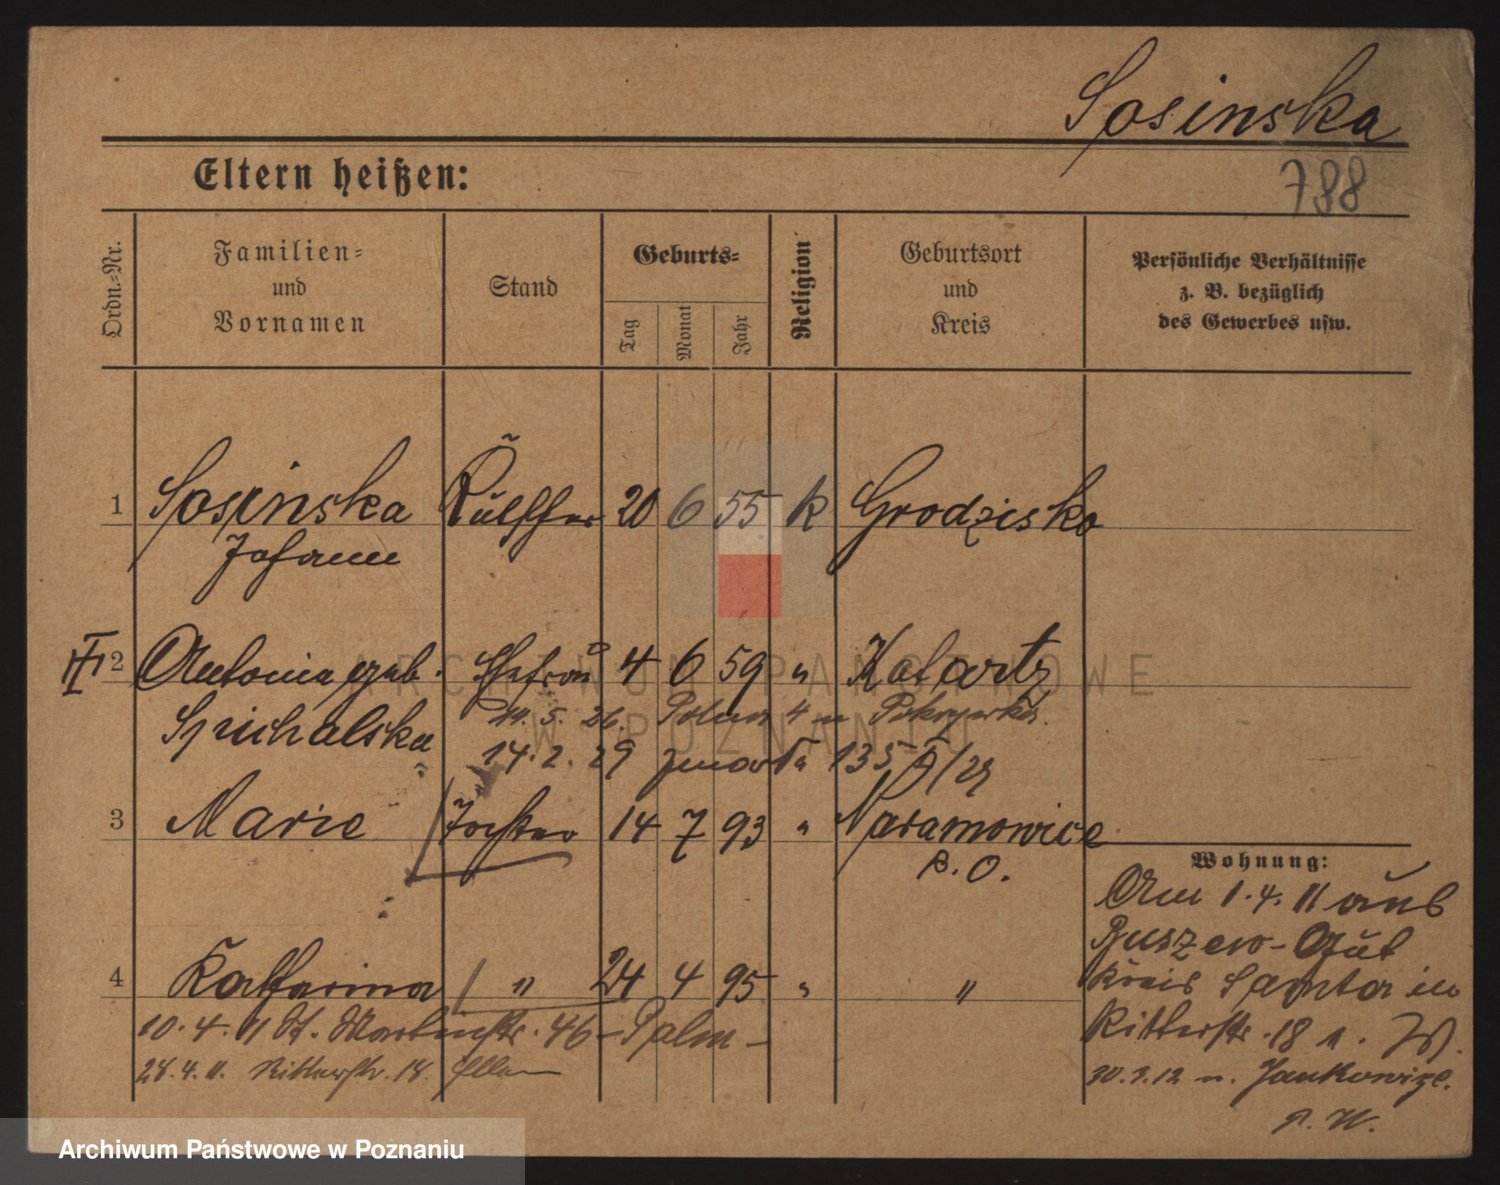 Sosinska
Eltern heißen:
788
Ordn.-Nr.
Familien-
und
Vornamen
Stand
Geburts-
Tag
Monat
Jahr
Religion
Geburtsort
und
Kreis
Persönliche Verhältnisse
z. B. bezüglich
des Gewerbes usw.
1 Sosinska 20 6 55 k Grodzisko
Johann
2 Antonia geb. Ehefrau 4 6 59 " Kobartz
Spichalska 5. 26. 4
14. 2. 29 135
3 Marie Tochter 14 7 93 " Naramowice
P. O.
Wohnung:
Am 1.4.11 aus
Buszewo-Gut
Kreis Samter in
Ritterstr. 18
4 Katharina " 24 4 95 " "
10.4.11 St. Martinstr. 46 - Palm -
28.4.11. Ritterstr. 18.
30.3.12 n. Jankowice
P. W.
ARCHIWUM PAŃSTWOWE
W POZNANIU
Archiwum Państwowe w Poznaniu